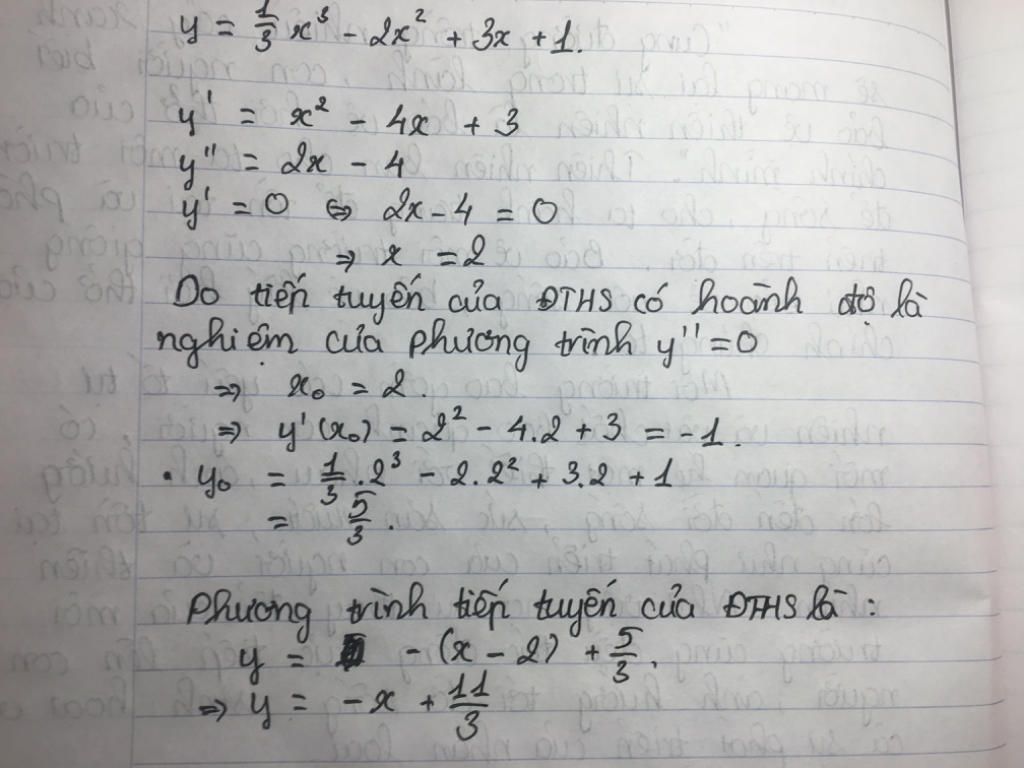 y = 1/3 x³ - 2x² + 3x + 1.
y' = x² - 4x + 3
y'' = 2x - 4
y' = 0 ⇔ 2x - 4 = 0
⇒ x = 2
Do tiếp tuyến của ĐTHS có hoành độ là
nghiệm của phương trình y'' = 0
⇒ x₀ = 2.
⇒ y'(x₀) = 2² - 4.2 + 3 = -1.
• y₀ = 1/3 . 2³ - 2.2² + 3.2 + 1
= 5/3 .
Phương trình tiếp tuyến của ĐTHS là :
y = - (x - 2) + 5/3 .
⇒ y = -x + 11/3